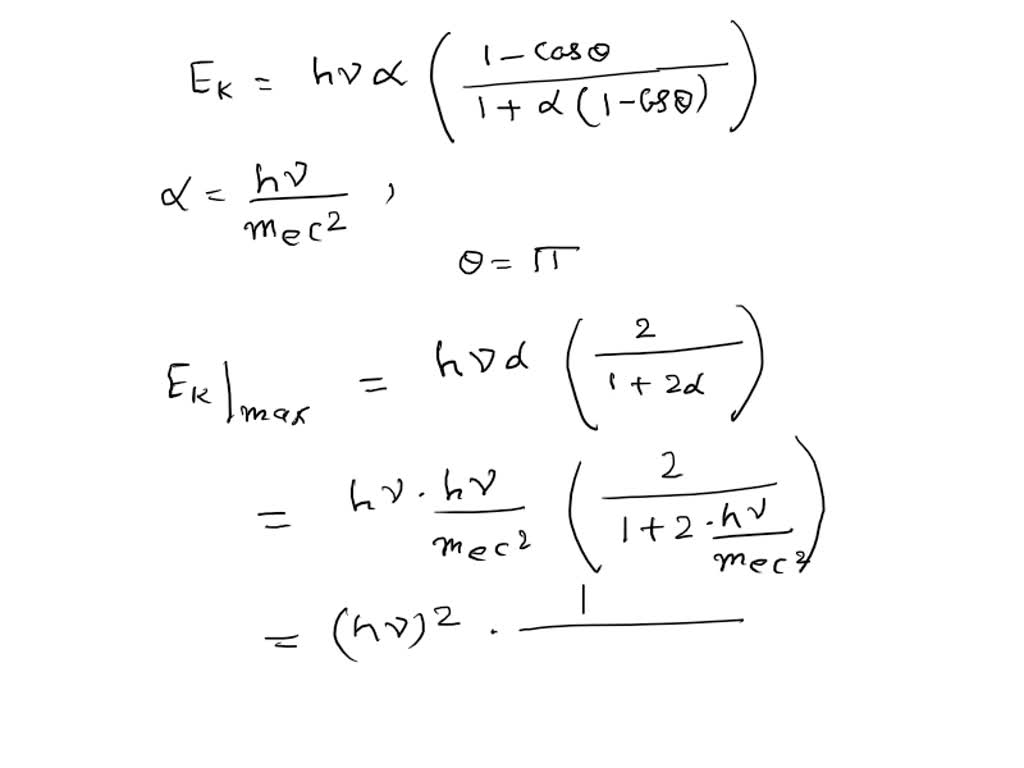 E_K = hν α ( (1 - cosθ) / (1 + α(1 - cosθ)) )
α = hν / m_e c² ,
θ = π
E_K |_max = hνα ( 2 / (1 + 2α) )
= hν · hν / m_e c² ( 2 / (1 + 2 · hν / m_e c²) )
= (hν)² · 1 /